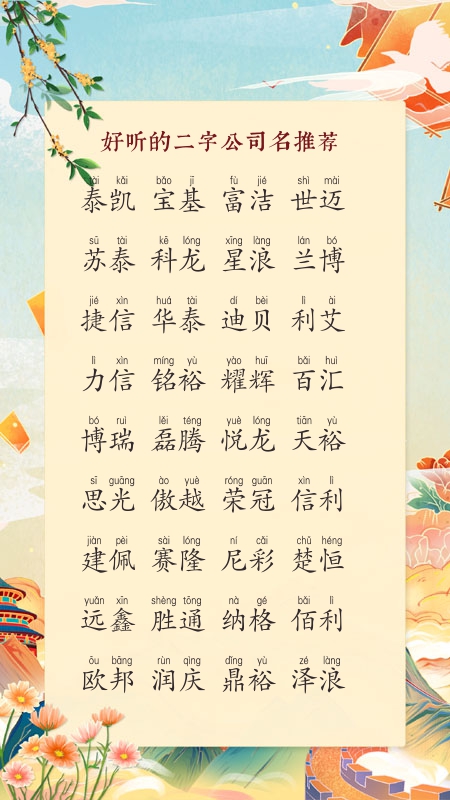 好听的二字公司名推荐
tài kǎi bǎo jī fù jié shì mài
泰凯 宝基 富洁 世迈
sū tài kē lóng xīng làng lán bó
苏泰 科龙 星浪 兰博
jié xìn huá tài dí bèi lì ài
捷信 华泰 迪贝 利艾
lì xìn míng yù yào huī bǎi huì
力信 铭裕 耀辉 百汇
bó ruì lěi téng yuè lóng tiān yù
博瑞 磊腾 悦龙 天裕
sī guāng ào yuè róng guān xìn lì
思光 傲越 荣冠 信利
jiàn pèi sài lóng ní cǎi chǔ héng
建佩 赛隆 尼彩 楚恒
yuǎn xīn shèng tōng nà gé bǎi lì
远鑫 胜通 纳格 佰利
ōu bāng rùn qìng dǐng yù zé làng
欧邦 润庆 鼎裕 泽浪